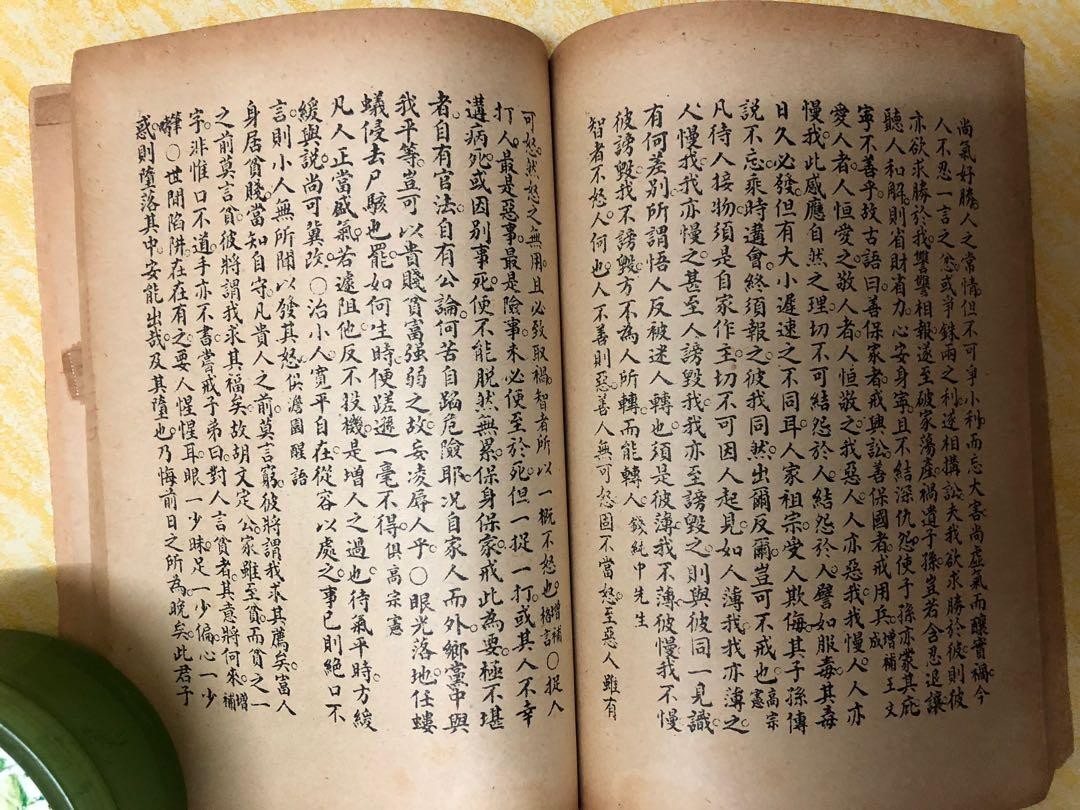 尚氣好勝。人之常情。但不可爭小利而忘大害。尚虛氣而釀實禍。今
人不忍一言之忿。或爭銖兩之利。遂相搆訟。夫我欲求勝於彼。則彼
亦欲求勝於我。讐讐相報。遂至破家蕩產。禍遺子孫。豈若含忍退讓
聽人和解。則省財省力。心安身寧。且不結深仇怨。使子孫亦蒙其庇
寧不善乎。故古語曰。善保家者戒興訟。善保國者戒用兵。增補王文成
愛人者。人恒愛之。敬人者。人恒敬之。我惡人。人亦惡我。我慢人。人亦
慢我。此感應自然之理。切不可結怨於人。結怨於人。譬如服毒。其毒
日久必發。但有大小遲速之不同耳。人家祖宗受人欺侮。其子孫傳
說不忘。乘時遘會。終須報之。彼我同然。出爾反爾。豈可不戒也。高宗憲
凡待人接物。須是自家作主。切不可因人起見。如人薄我。我亦薄之
人慢我。我亦慢之。甚至人謗毀我。我亦至謗毀之。則與彼同一見識
有何差別。所謂悟人反被迷人轉也。須是彼薄我不薄。彼慢我不慢
彼謗毀。我不謗毀。方不為人所轉。而能轉人。錢純中先生
智者不怒人何也。人不善則惡。善人無可怒。固不當怒。至惡人雖有
可怒。然怒之無用。且必致取禍。智者所以一概不怒也。增補格言〇捉人
打人。最是惡事。最是險事。未必便至於死。但一捉一打。或其人不幸
遘病死。或因別事死。便不能脫然無累。保身保家。戒此為要。極不堪
者。自有官法。自有公論。何苦自蹈危險耶。况自家人而外。鄉黨中與
我平等。豈可以貴賤貧富強弱之故。妄凌辱人乎。〇眼光落地。任螻
蟻侵去尸骸也罷。如何生時便蹉遞一毫不得。俱高宗憲
凡人正當盛氣。若遽阻他。反不投機。是增人之過也。待氣平時。方緩
緩與說。尚可冀改。〇治小人寬平自在。從容以處之。事已則絕口不
言。則小人無所關以發其怒。俟澹園醒語
身居貧賤。當知自守。凡貴人之前莫言窮。彼將謂我求其薦矣。富人
之前莫言貧。彼將謂我求其福矣。故胡文定公。家雖至貧。而貧之一
字。非惟口不道。手亦不書。嘗戒子弟曰。對人言貧者。其意將何求。增補
〇世間陷阱。在在有之。要人惺惺耳。眼一少昧。足一少偏。心一少
惑。則墮落其中。安能出哉。及其墮也。乃悔前日之所為。晚矣。此君子